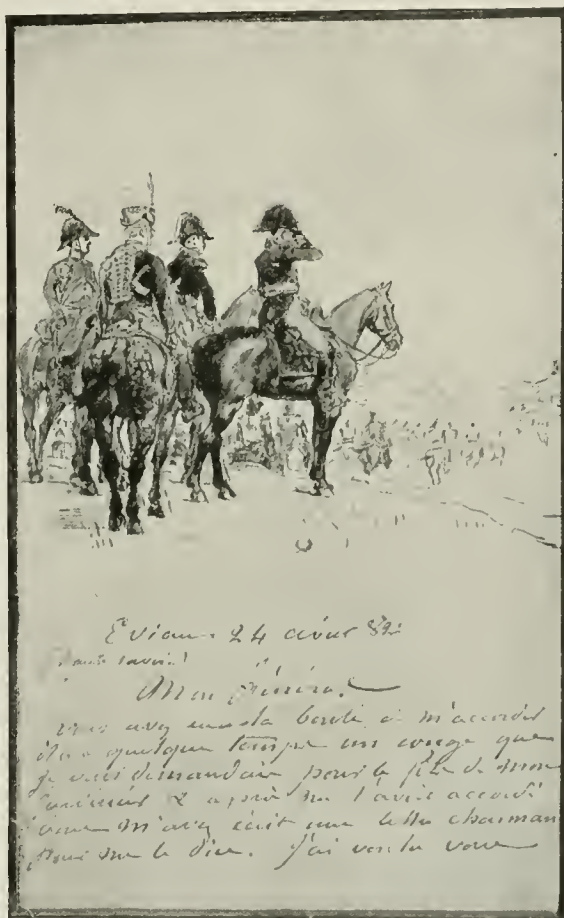 Evian. 24 août 82
Haute Savoie
Mon Général
vous avez eu la bonté de m'accorder
il y a quelque temps un congé que
je vous demandais pour le fils de mon
& après me l'avoir accordé
vous m'avez écrit une lettre charmante
pour me le dire. J'ai voulu vous